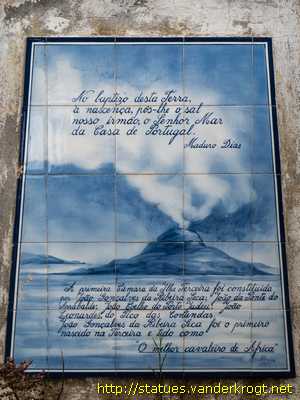 No baptizo desta Terra,
à nascença, pôs-lhe o sal
nosso irmão, o Senhor Mar
da Casa de Portugal.
Maduro Dias
A primeira Câmara da Ilha Terceira foi constituída
por João Gonçalves da Ribeira Seca; João da Ponte do
João Coelho do Porto Judeu; João
Leonardes, do Pico das Contendas
João Gonçalves da Ribeira Seca foi o primeiro
nascido na Terceira e tido como
"O melhor cavaleiro de África"
http://statues.vanderkrogt.net